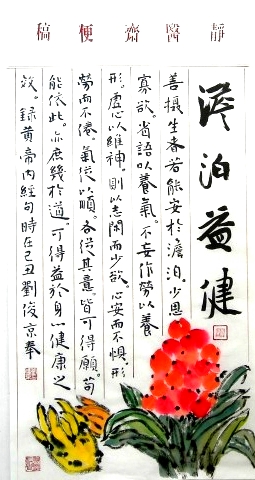 靜醫齋梗稿
淡泊益健
善攝生者若能安於澹泊。少思
寡欲。省語以養氣。不妄作勞以養
形。虛心以維神。則以志閑而少欲。心安而不懼。形
勞而不倦。氣從以順。各從其意。皆可得願。苟
能依此。亦庶幾於道。可得益於身心健康之
效。錄黃帝內經句時在己丑劉俊京奉